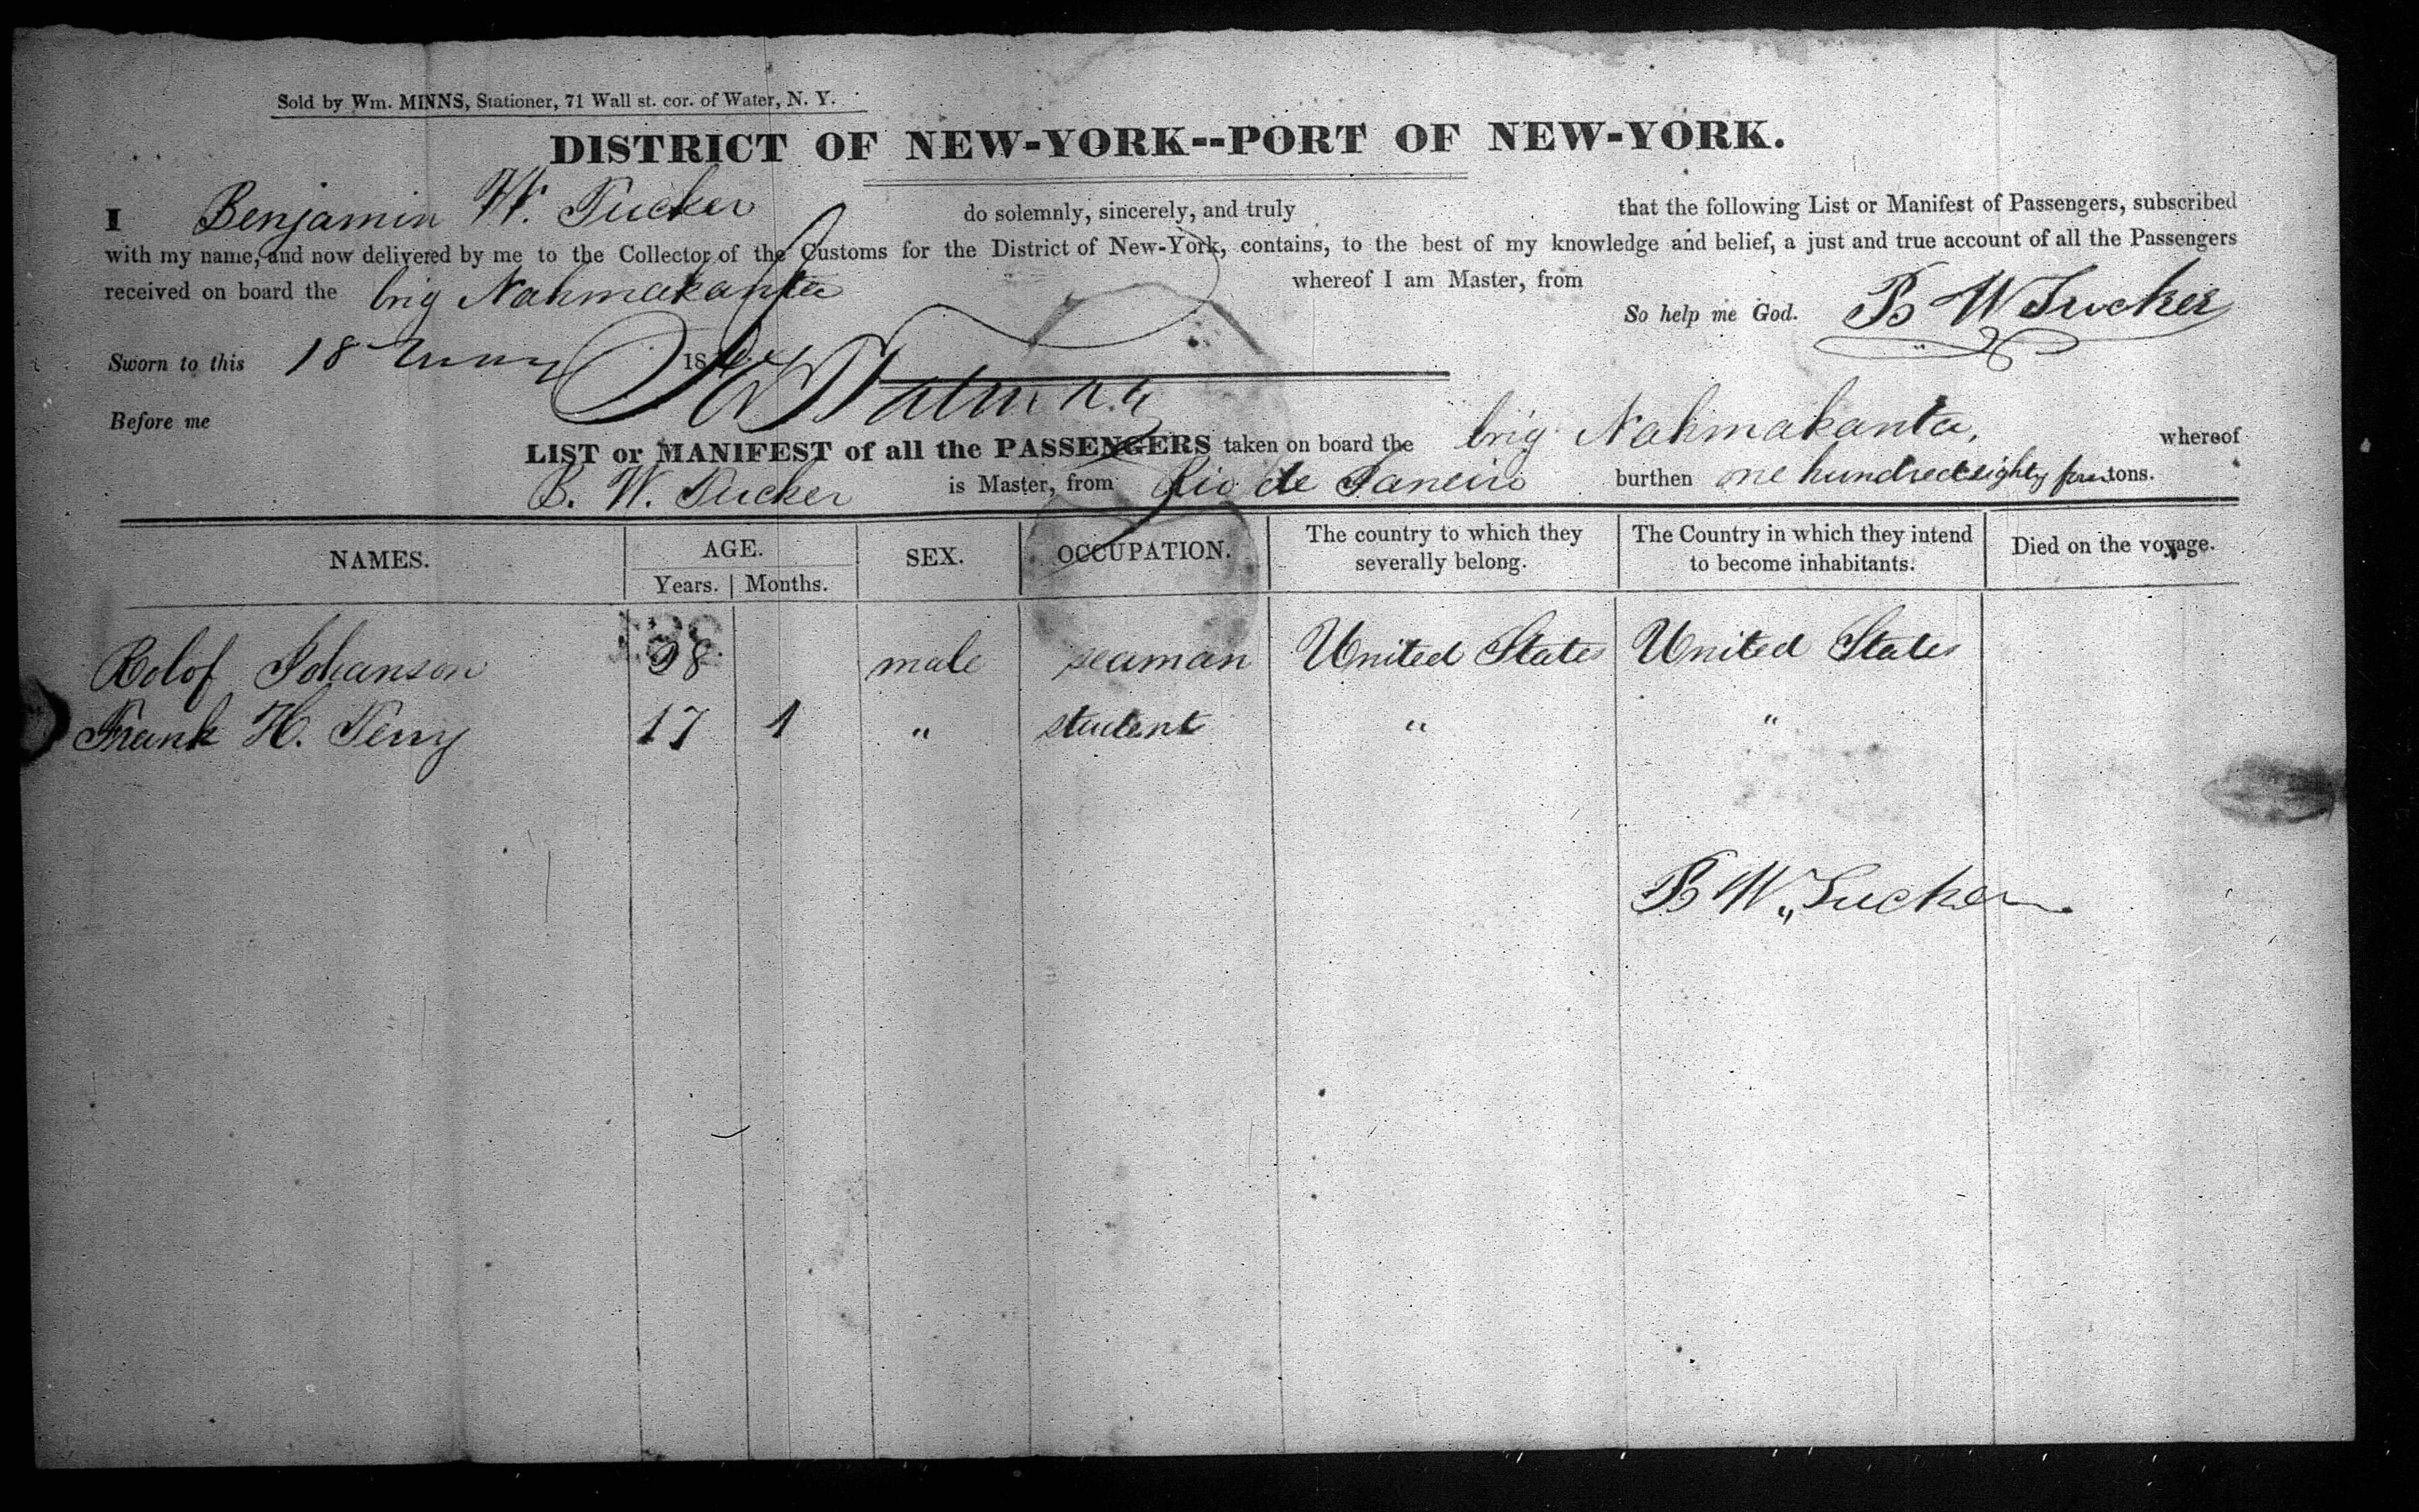 Sold by Wm. MINNS, Stationer, 71 Wall st. cor. of Water, N. Y.
DISTRICT OF NEW-YORK--PORT OF NEW-YORK.
I Benjamin W. Tucker do solemnly, sincerely, and truly that the following List or Manifest of Passengers, subscribed
with my name, and now delivered by me to the Collector of the Customs for the District of New-York, contains, to the best of my knowledge and belief, a just and true account of all the Passengers
received on board the brig Nahmakanta whereof I am Master, from
So help me God. B W Tucker
Sworn to this 18 18
Before me
LIST or MANIFEST of all the PASSENGERS taken on board the brig Nahmakanta, whereof
B. W. Tucker is Master, from Rio de Janeiro burthen one hundred eighty four tons.
NAMES. AGE. Years. Months. SEX. OCCUPATION. The country to which they severally belong. The Country in which they intend to become inhabitants. Died on the voyage.
Rolof Johanson 38 male seaman United States United States
Frank H. Perry 17 1 " student " "
B W. Tucker